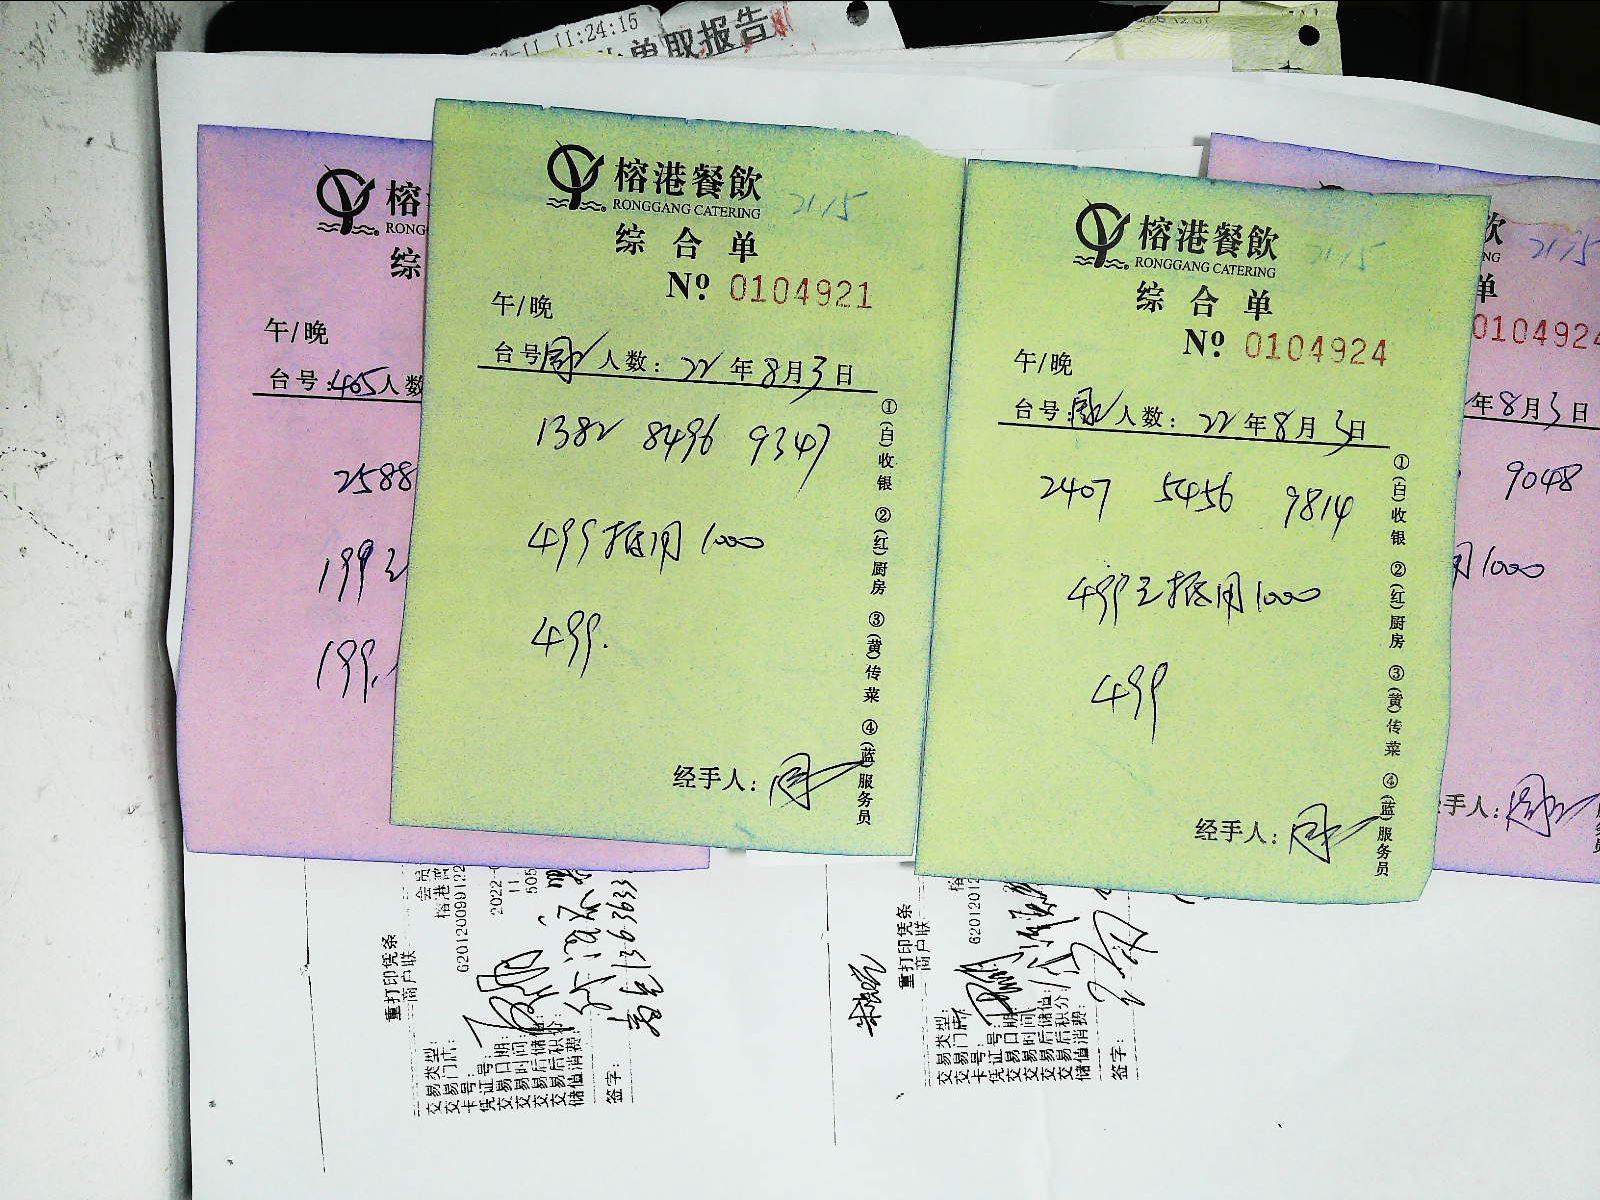 11:24:15
单取报告
榕
RONG
综
午/晚
台号:405人数
2588
199元
199.
榕港餐飲
RONGGANG CATERING
2115
综合单
Nº 0104921
午/晚
台号 人数: 22年8月3日
1382 8496 9347
499抵用1000
499.
经手人:周
①(白)收银 ②(红)厨房 ③(黄)传菜 ④(蓝)服务员
榕港餐飲
RONGGANG CATERING
2115
综合单
Nº 0104924
午/晚
台号: 人数: 22年8月3日
2407 5456 9814
499元抵用1000
499
经手人:周
①(白)收银 ②(红)厨房 ③(黄)传菜 ④(蓝)服务员
飲
NG
2115
单
0104924
年8月3日
9048
用1000
手人:
重打印凭条
商户联
交易类型:
交易门店:
卡号:
凭证号:
交易日期:
交易时间:
交易后储值:
交易后积分:
储值消费:
签字:
会员
榕港
620120099122
2022-
11
505
重打印凭条
商户联
交易类型:
交易门店:
卡号:
凭证号:
交易日期:
交易时间:
交易后储值:
交易后积分:
储值消费:
签字:
榕
6201201